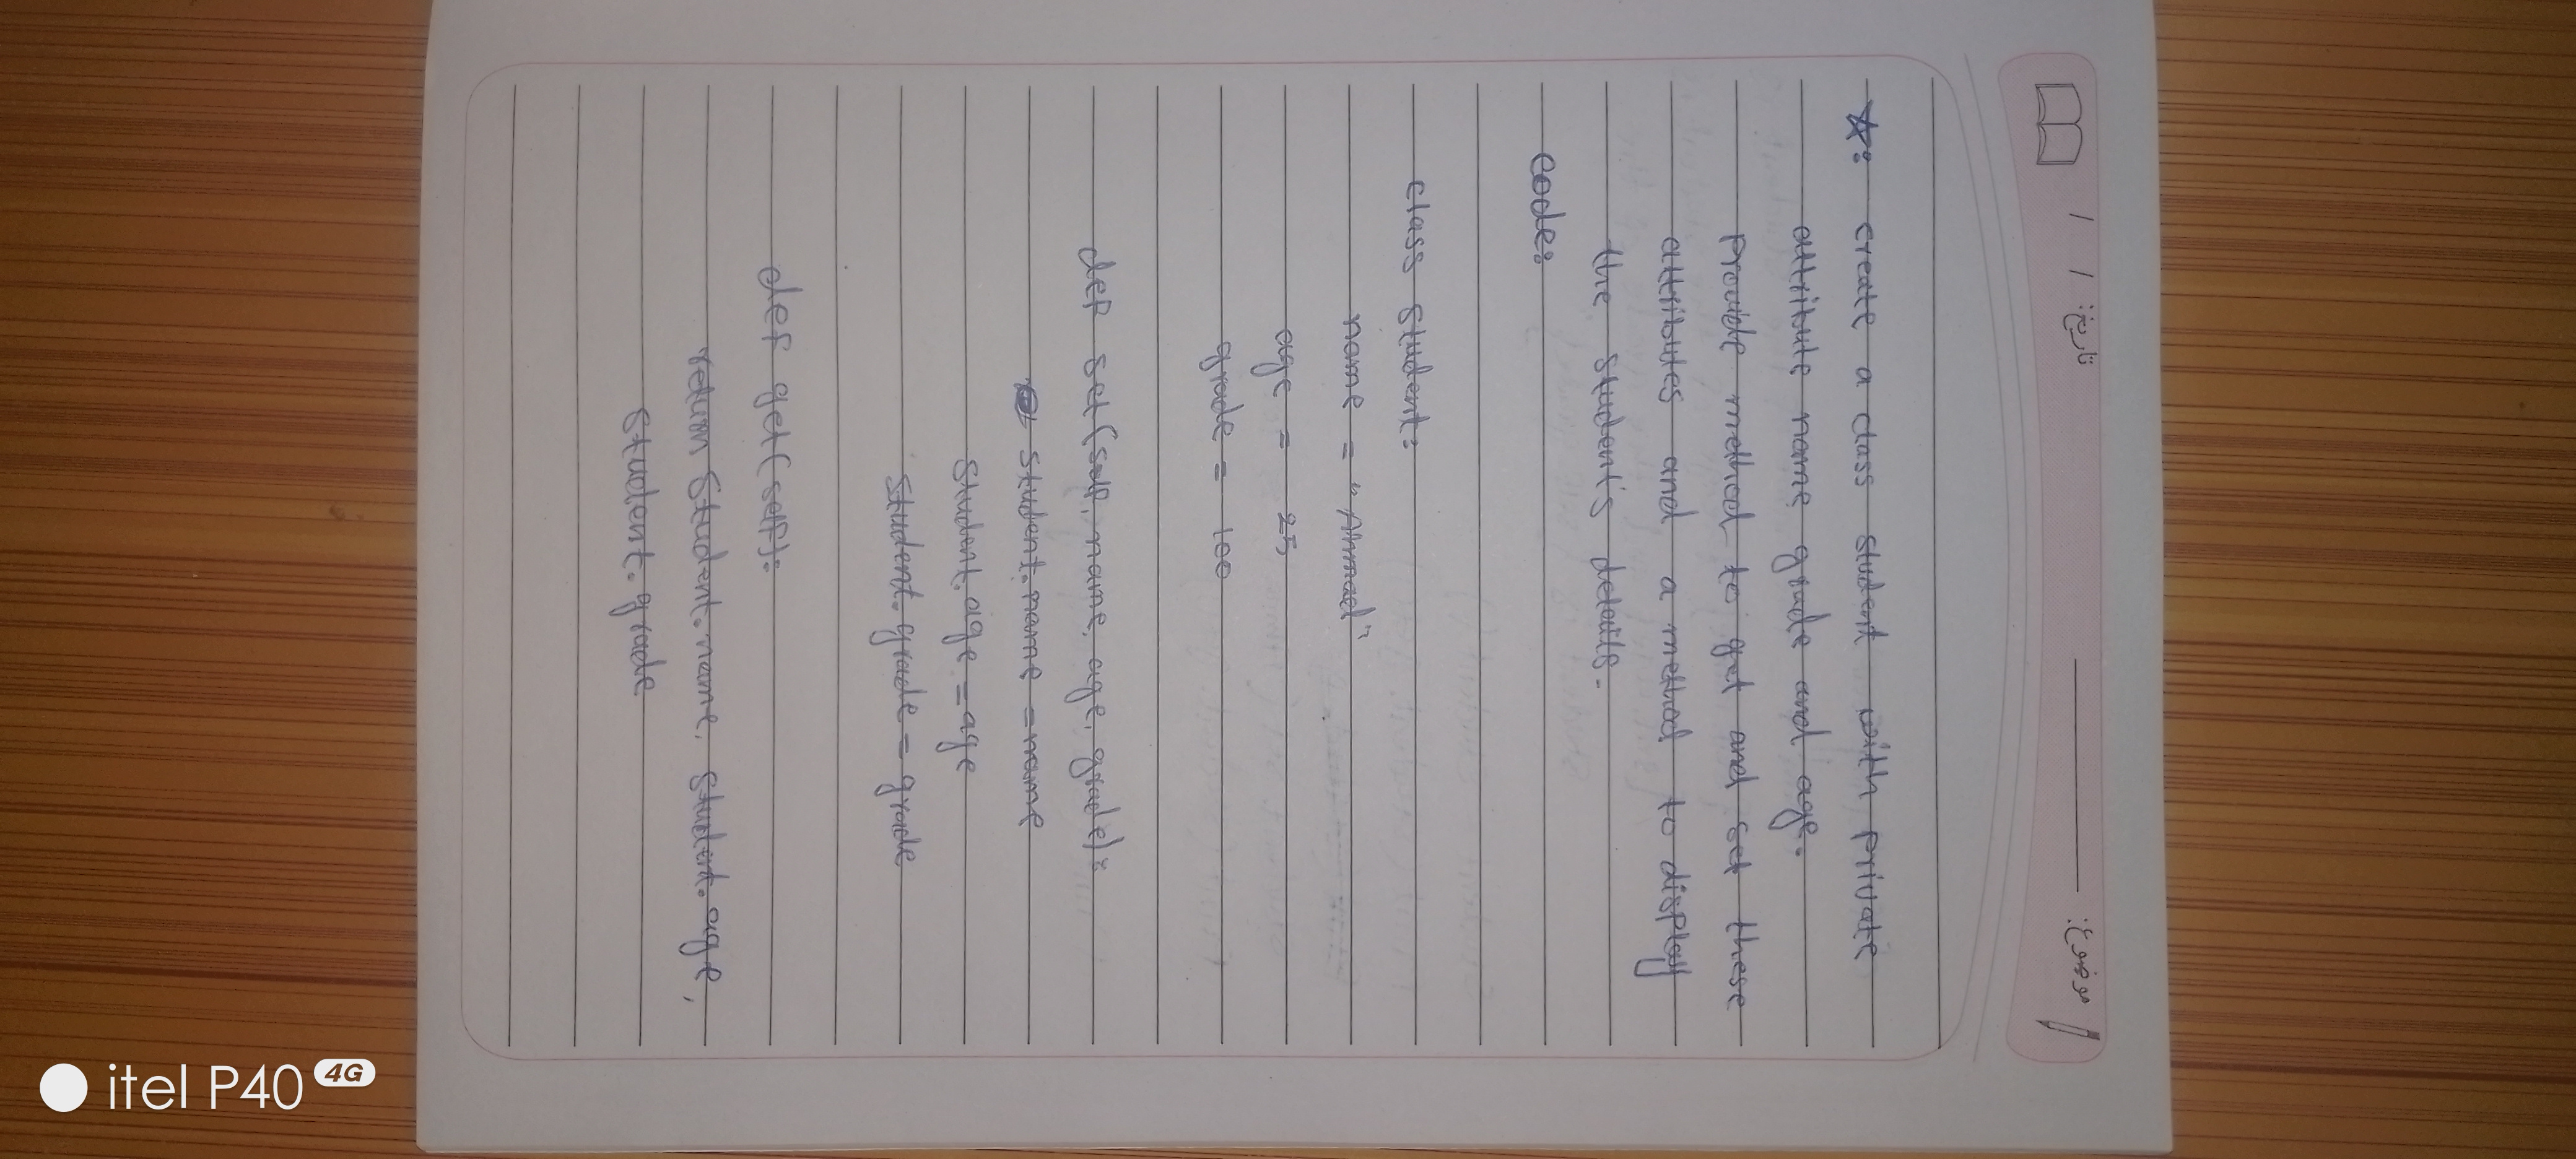 تاریخ: / /
موضوع:
☆: create a class student with private
attribute name, grade and age.
Provide method to get and set these
attributes and a method to display
the student's details.
code:
class student:
name = "Ahmad"
age = 25
grade = 100
def set(self, name, age, grade):
student.name = name
student.age = age
student.grade = grade
def get(self):
return student.name, student.age,
student.grade
itel P40 4G